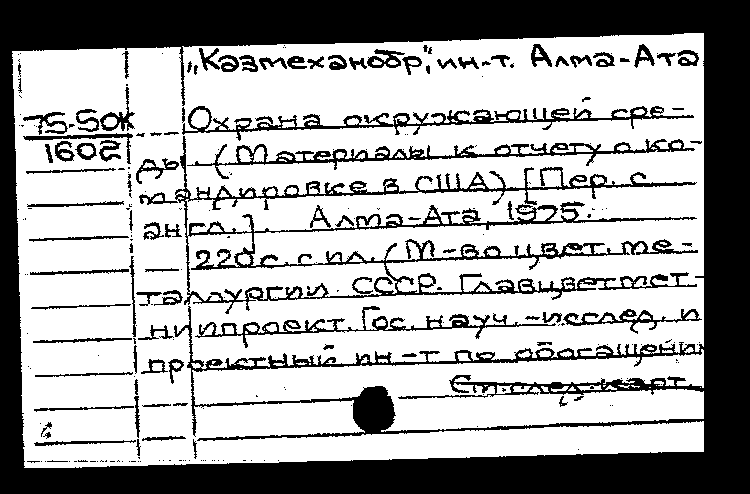 „Казмеханобр", ин-т. Алма-Ата
75-50К
1602
Охрана окружающей сре-
ды. (Материалы к отчету о ко-
мандировке в США) [Пер. с
англ.]. Алма-Ата, 1975.
220с. с ил. (М-во цвет. ме-
таллургии СССР. Главцветмет-
ниипроект. Гос. науч.-исслед. и
проектный ин-т по обогащению
См. след. карт.